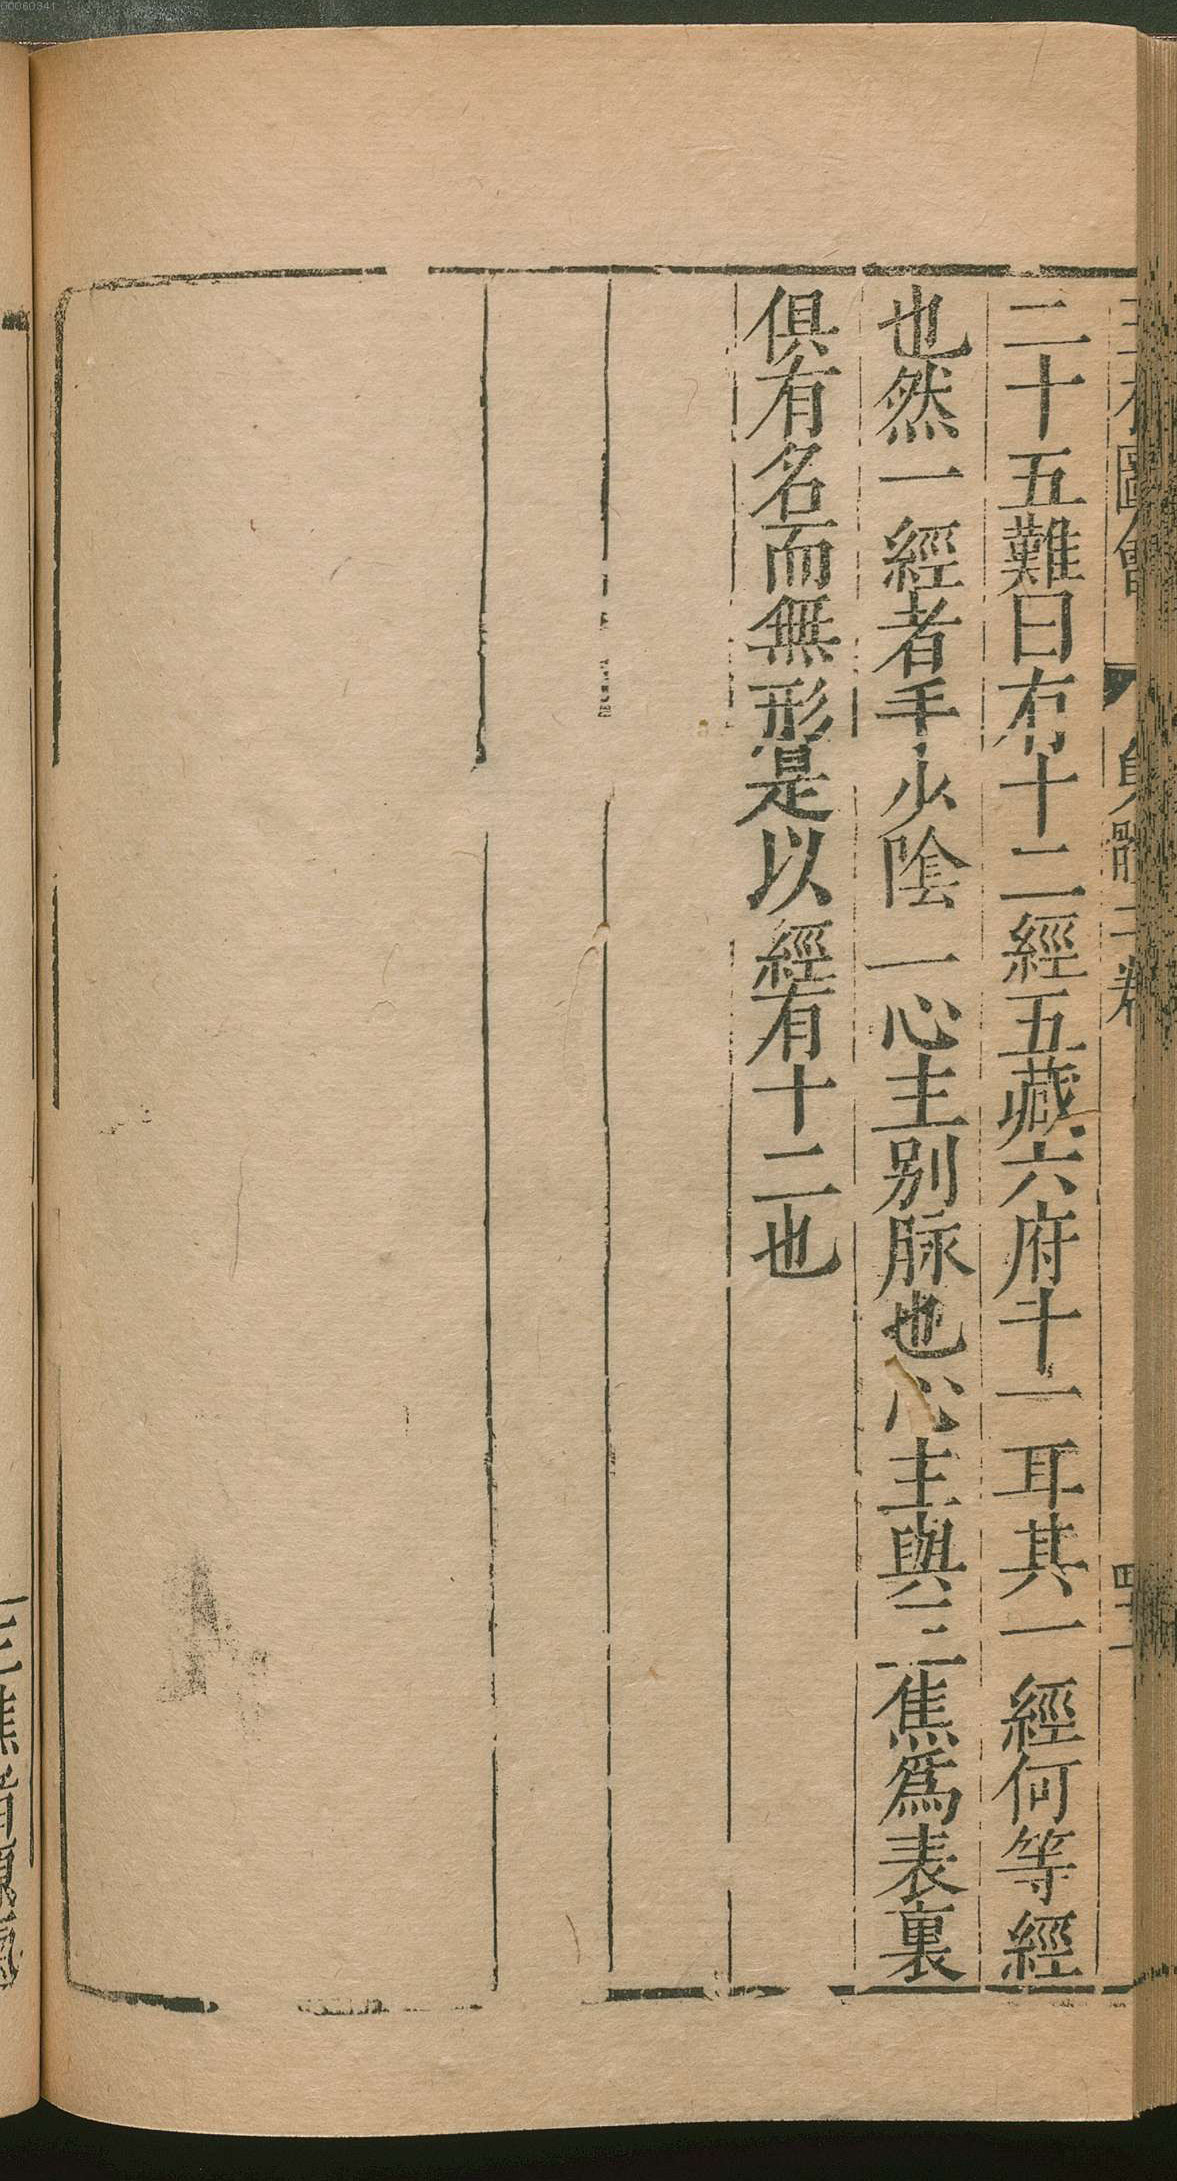 二十五難曰有十二經五藏六府十一耳其一經何等經
也然一經者手少陰一心主別脉也心主與三焦爲表裏
俱有名而無形是以經有十二也
00060341